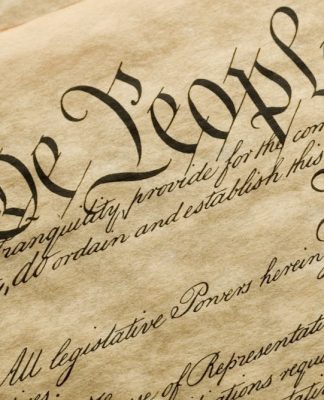 We People
Tranquility, provide for the com
, do ordain and establish this
All legislative Powers herein
of Representati
ations requ